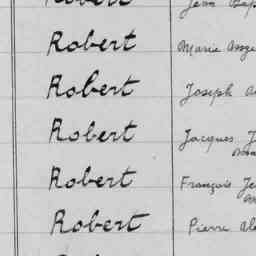 Robert Jean Bap
Robert Marie Ange
Robert Joseph A
Robert Jacques J
Robert François Je
Robert Pierre Al